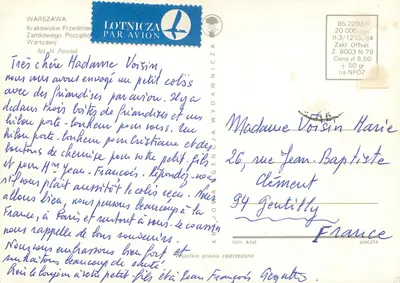 WARSZAWA
Krakowskie Przedmieś
Zamkowego. Początko
Warszawy
fot. H. Poddęb
LOTNICZA
PAR AVION
85-2203
20 000
Zakł. Offset
Z. 6003 N 79
Cena zł 8,50
+ 50 gr
na NFOZ
Très chère Madame Voisin,
nous vous avons envoyé un petit colis
avec des friandises par avion. Il y a
dedans trois boîtes de friandises et un
bijou porte-bonheur pour vous. Un
bijou porte-bonheur pour Christiane et des
boutons de chemise pour votre petit-fils
et pour Mr. Jean-François. Répondez-nous
s'il vous plaît aussitôt le colis reçu. Nous
allons bien, nous pensons beaucoup à la
France, à Paris et surtout à vous. Le coussin
nous rappelle de bons souvenirs.
Nous vous embrassons bien fort et
souhaitons beaucoup de santé.
le bonjour à votre petit-fils et à Jean François
KRAJOWA AGENCJA WYDAWNICZA
Madame Voisin Marie
26, rue Jean-Baptiste
Clément
94 Gentilly
France
kod
POCZTA
wszelkie prawa zastrzeżone